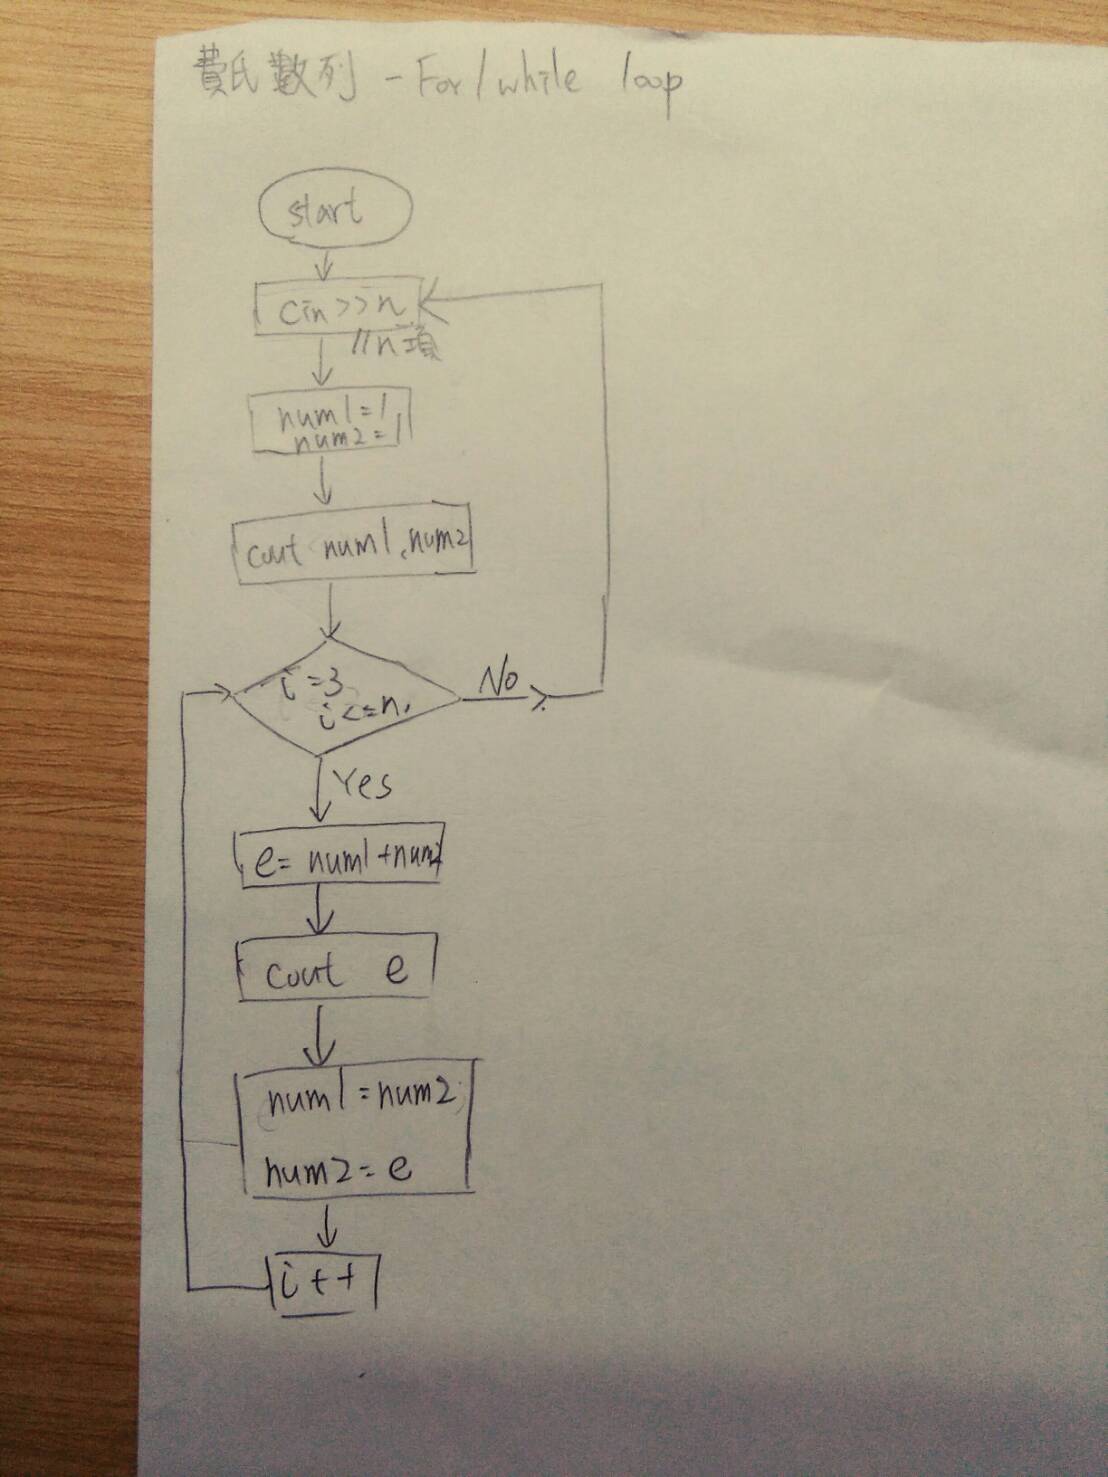 費氏數列 - For/while loop
start
cin>>n
//n項
num1=1,
num2=1
cout num1,num2
i=3
i<=n,
No
Yes
e= num1+num2
cout e
num1=num2;
num2=e
i++